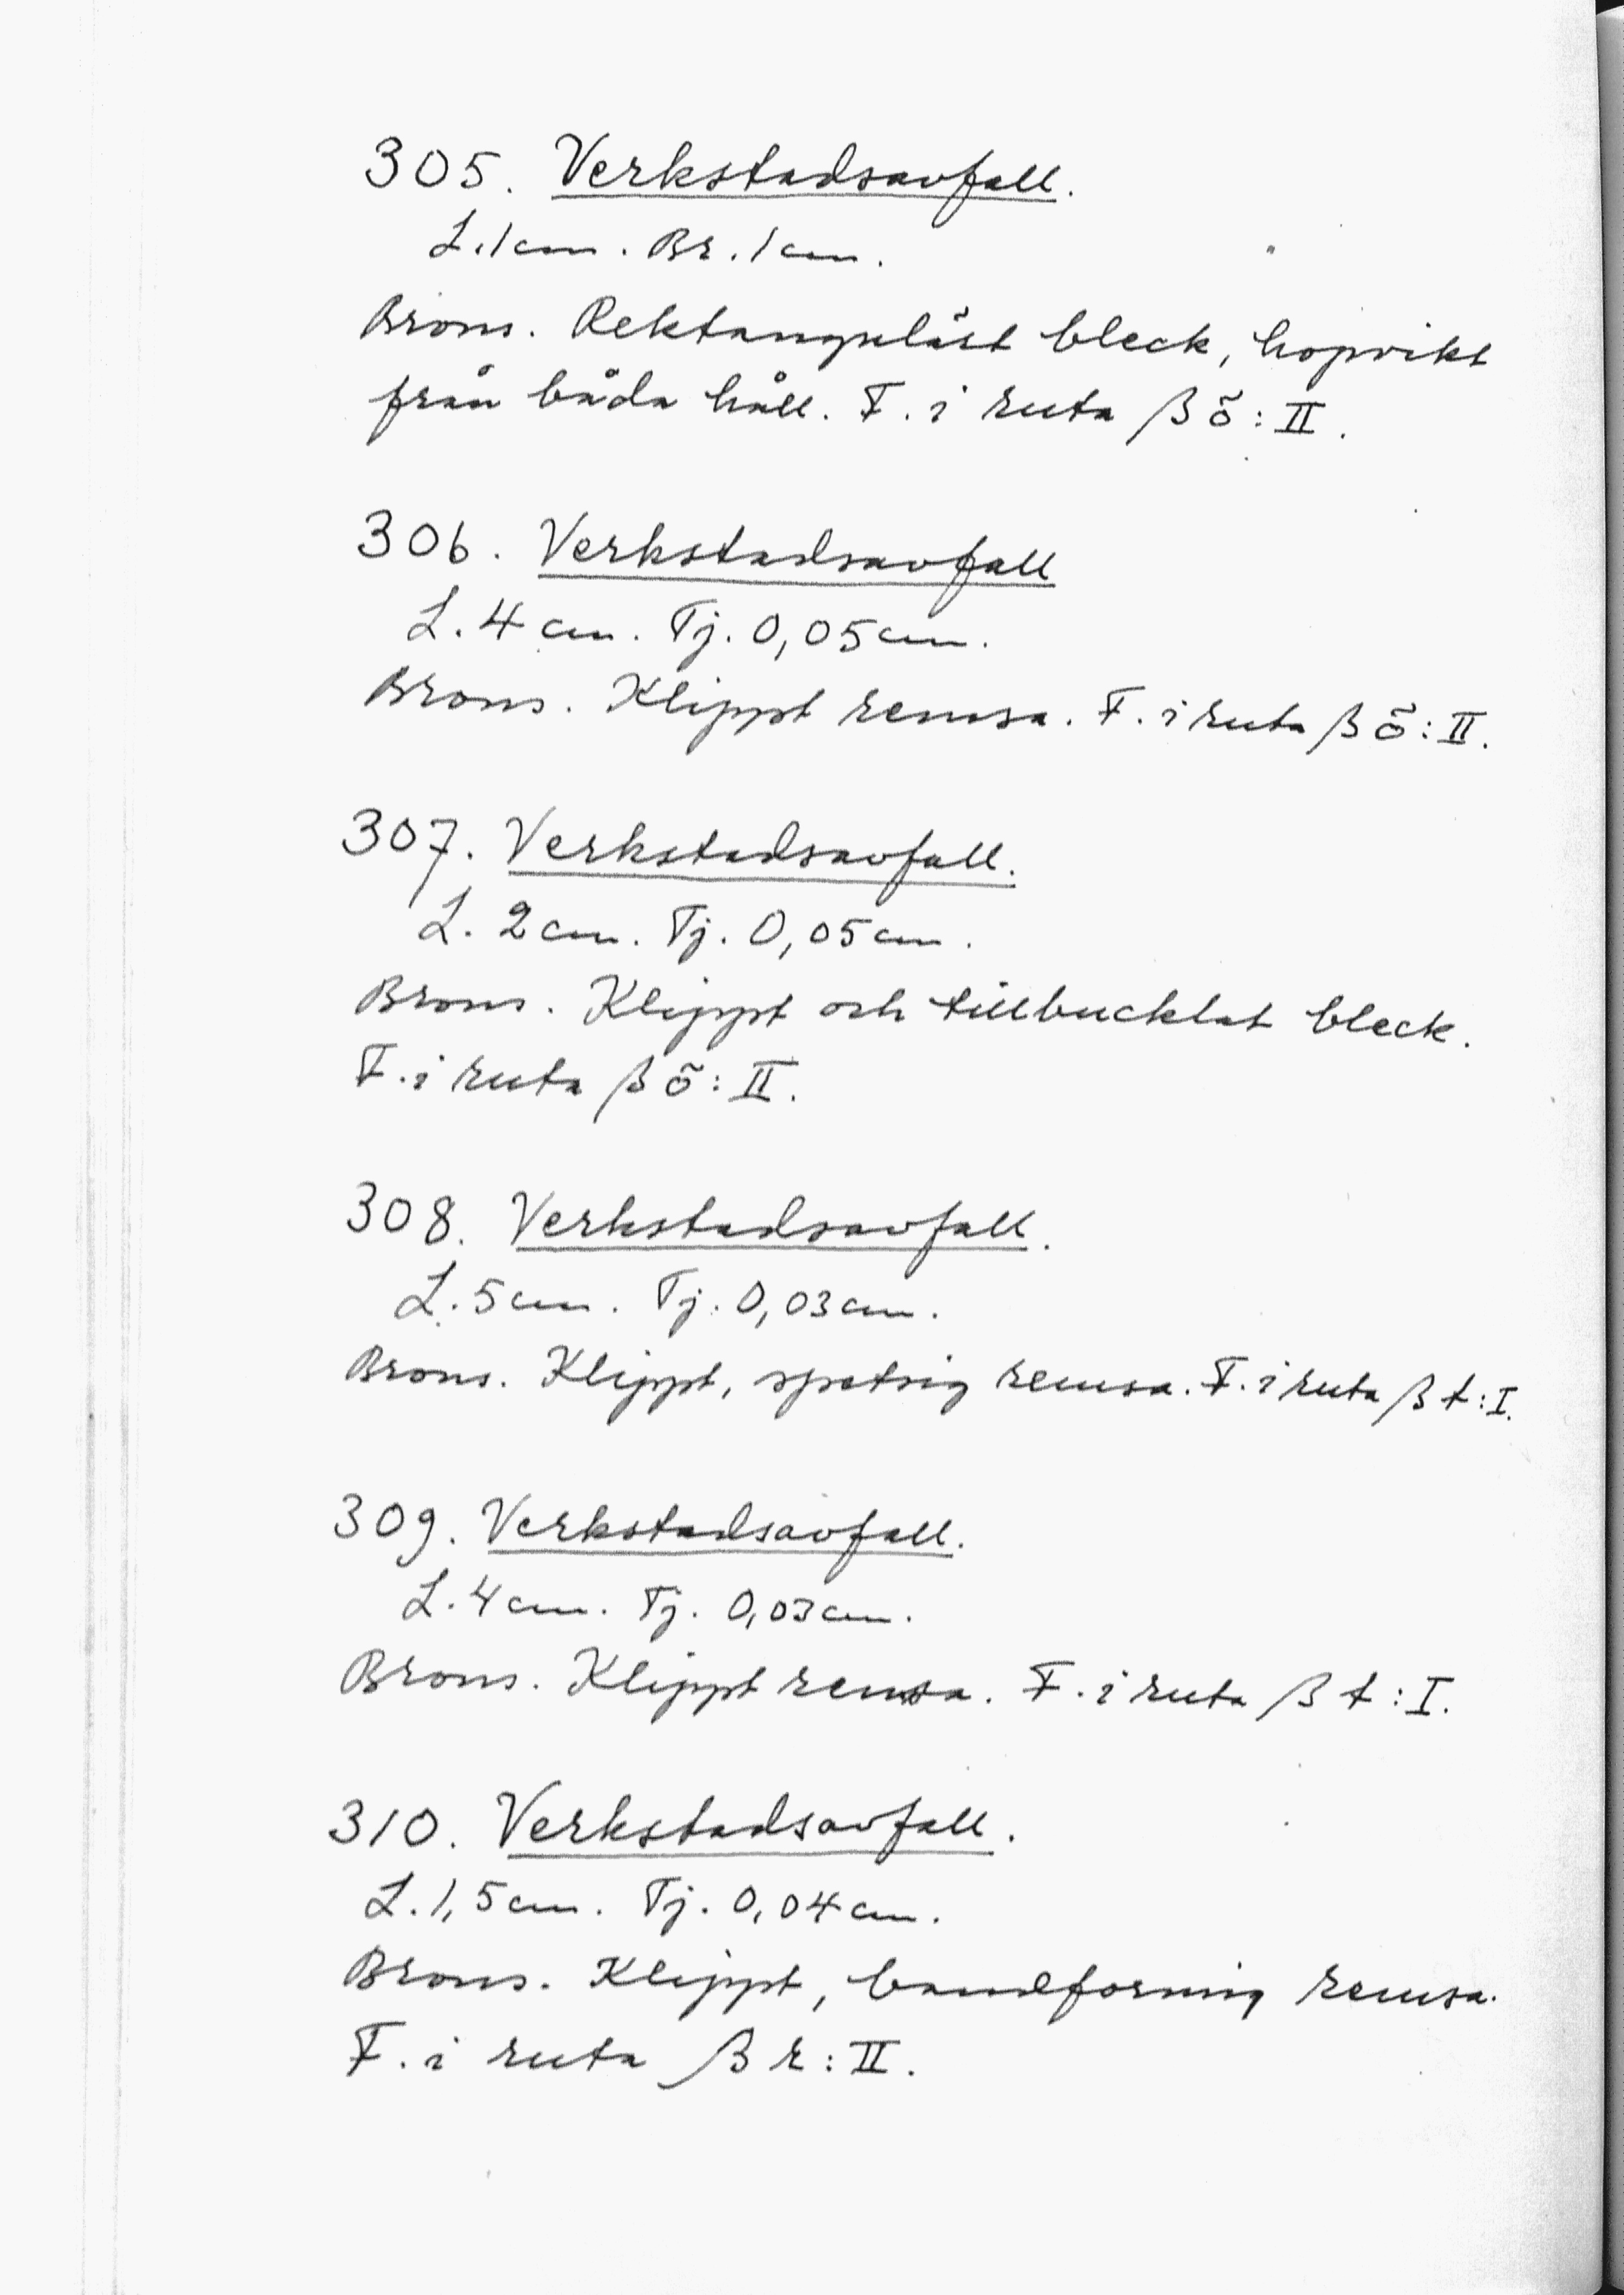 305. Verkstadsavfall.
L. 1 cm. Br. 1 cm.
Brons. Rektangulärt bleck, hopvikt
från båda håll. F. i ruta β ö: II.
306. Verkstadsavfall
L. 4 cm. Tj. 0,05 cm.
Brons. Klippt remsa. F. i ruta β ö: II.
307. Verkstadsavfall.
L. 2 cm. Tj. 0,05 cm.
Brons. Klippt och tillbucklat bleck.
F. i ruta β ö: II.
308. Verkstadsavfall.
L. 5 cm. Tj. 0,03 cm.
Brons. Klippt, spetsig remsa. F. i ruta β t: I.
309. Verkstadsavfall.
L. 4 cm. Tj. 0,03 cm.
Brons. Klippt remsa. F. i ruta β t: I.
310. Verkstadsavfall.
L. 1,5 cm. Tj. 0,04 cm.
Brons. Klippt, bandformig remsa.
F. i ruta β r: II.